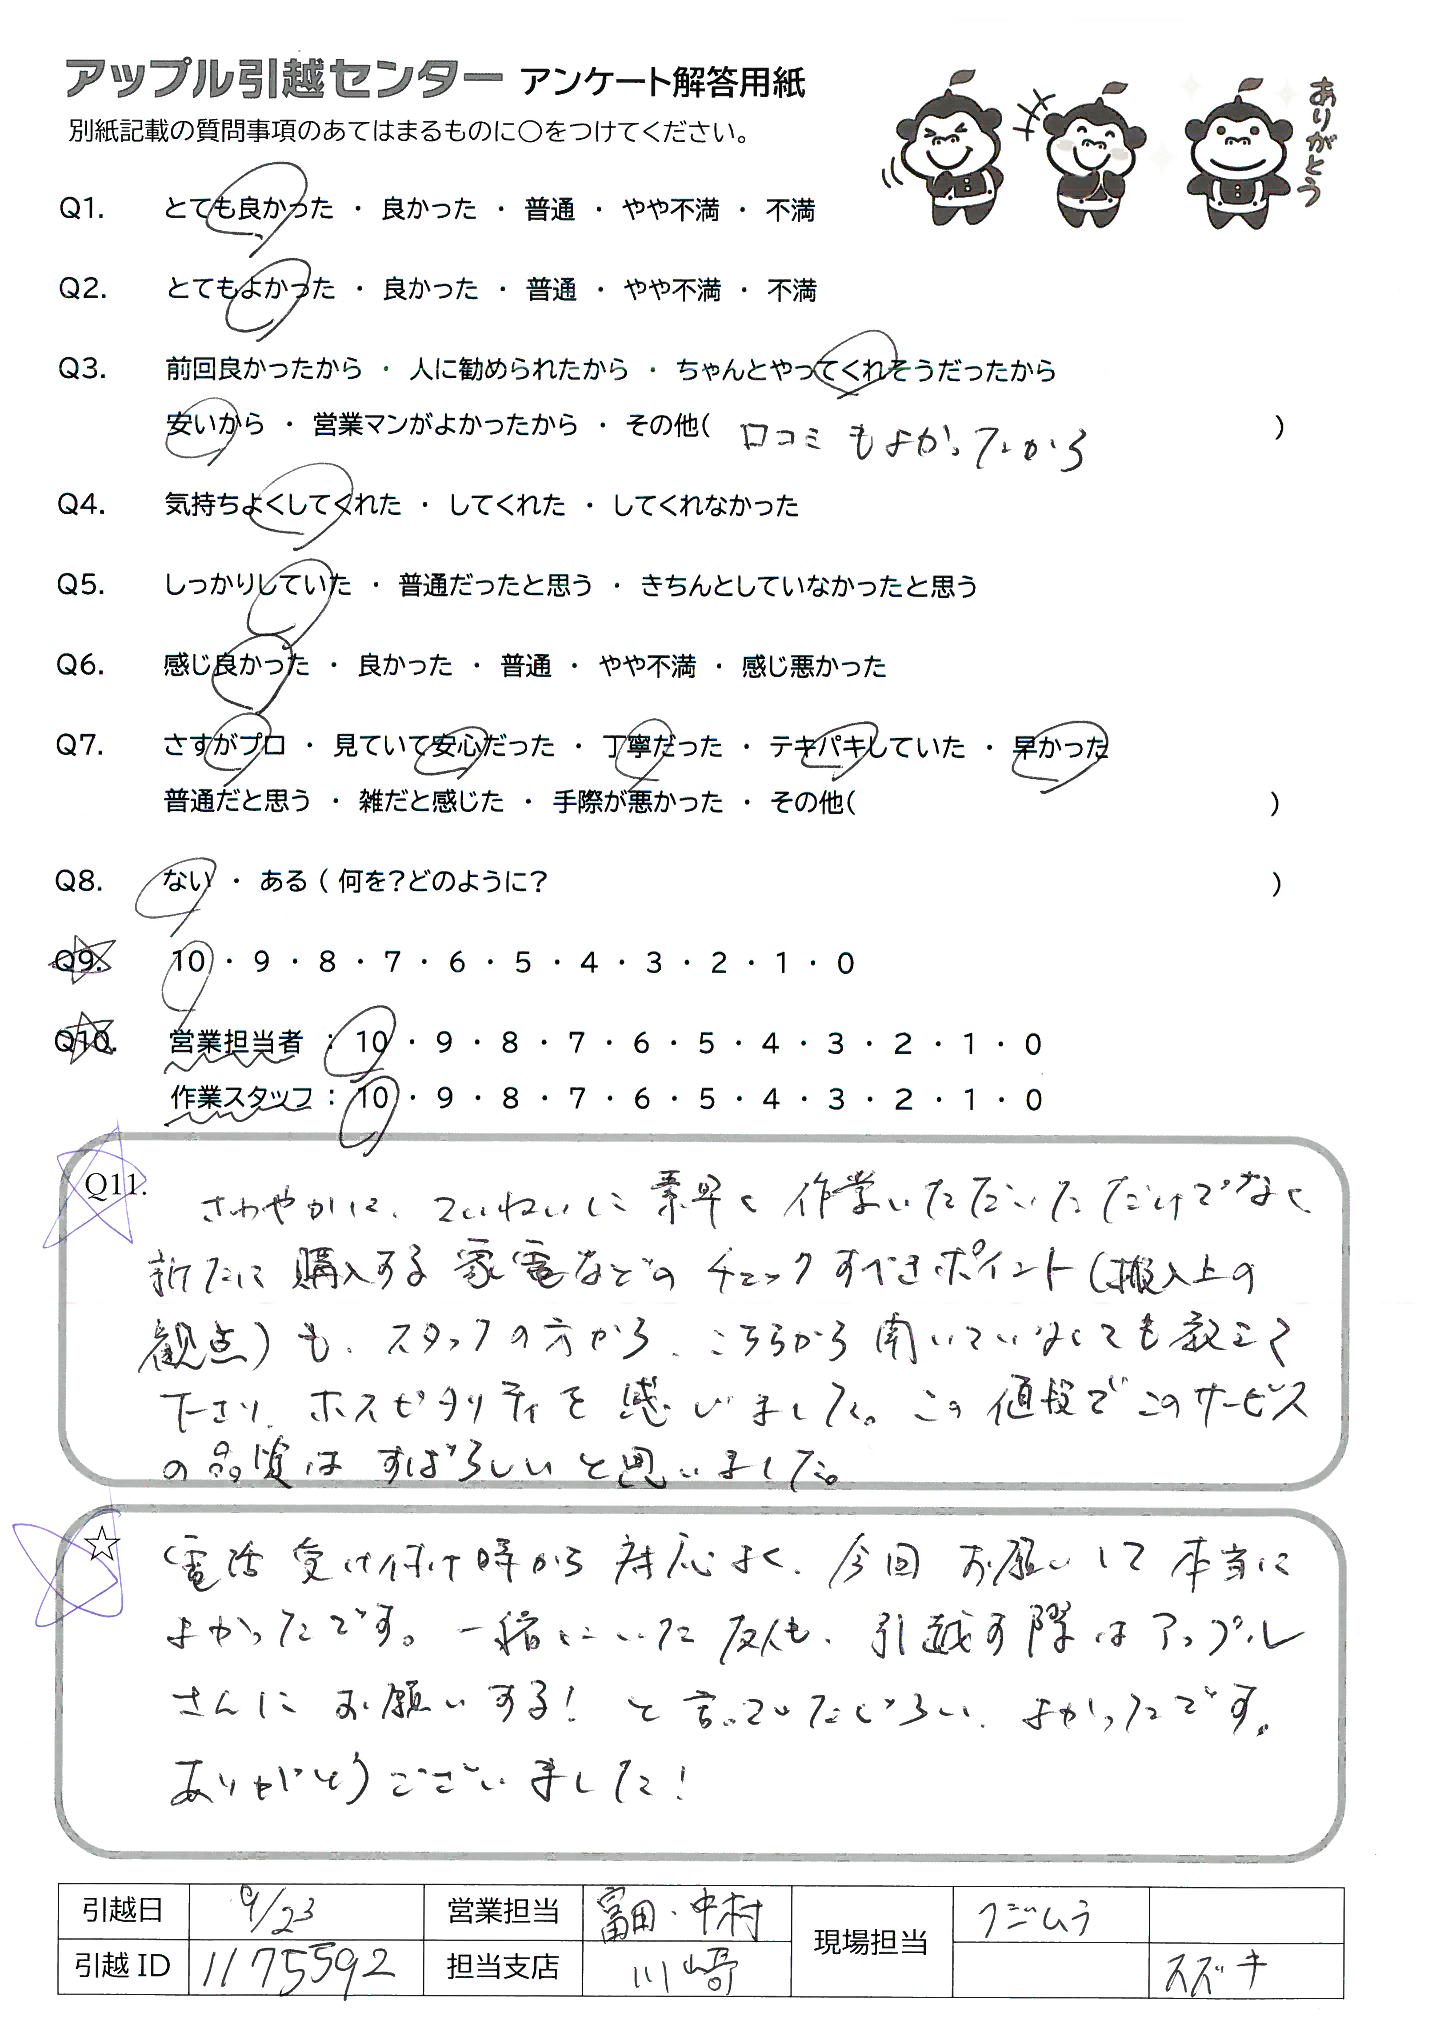 アップル引越センター アンケート解答用紙
別紙記載の質問事項のあてはまるものに○をつけてください。
ありがとう
Q1. とても良かった ・ 良かった ・ 普通 ・ やや不満 ・ 不満
Q2. とてもよかった ・ 良かった ・ 普通 ・ やや不満 ・ 不満
Q3. 前回良かったから ・ 人に勧められたから ・ ちゃんとやってくれそうだったから
安いから ・ 営業マンがよかったから ・ その他( 口コミもよかったから )
Q4. 気持ちよくしてくれた ・ してくれた ・ してくれなかった
Q5. しっかりしていた ・ 普通だったと思う ・ きちんとしていなかったと思う
Q6. 感じ良かった ・ 良かった ・ 普通 ・ やや不満 ・ 感じ悪かった
Q7. さすがプロ ・ 見ていて安心だった ・ 丁寧だった ・ テキパキしていた ・ 早かった
普通だと思う ・ 雑だと感じた ・ 手際が悪かった ・ その他( )
Q8. ない ・ ある ( 何を?どのように? )
Q9. 10 ・ 9 ・ 8 ・ 7 ・ 6 ・ 5 ・ 4 ・ 3 ・ 2 ・ 1 ・ 0
Q10. 営業担当者 : 10 ・ 9 ・ 8 ・ 7 ・ 6 ・ 5 ・ 4 ・ 3 ・ 2 ・ 1 ・ 0
作業スタッフ : 10 ・ 9 ・ 8 ・ 7 ・ 6 ・ 5 ・ 4 ・ 3 ・ 2 ・ 1 ・ 0
Q11. さわやかに、ていねいに素早く作業いただいただけでなく
新たに購入する家電などのチェックすべきポイント(搬入上の
観点)も、スタッフの方から、こちらから聞いていなくても教えて
下さり、ホスピタリティを感じました。この値段でこのサービス
の品質はすばらしいと思いました。
☆ 電話受け付け時から対応よく、今回お願いして本当に
よかったです。一緒にいた友人も、引越す際はアップル
さんにお願いする!と言っていたくらい、よかったです。
ありがとうございました!
引越日 9/23 営業担当 富田・中村 現場担当 フジムラ
引越ID 1175592 担当支店 川崎 スズキ